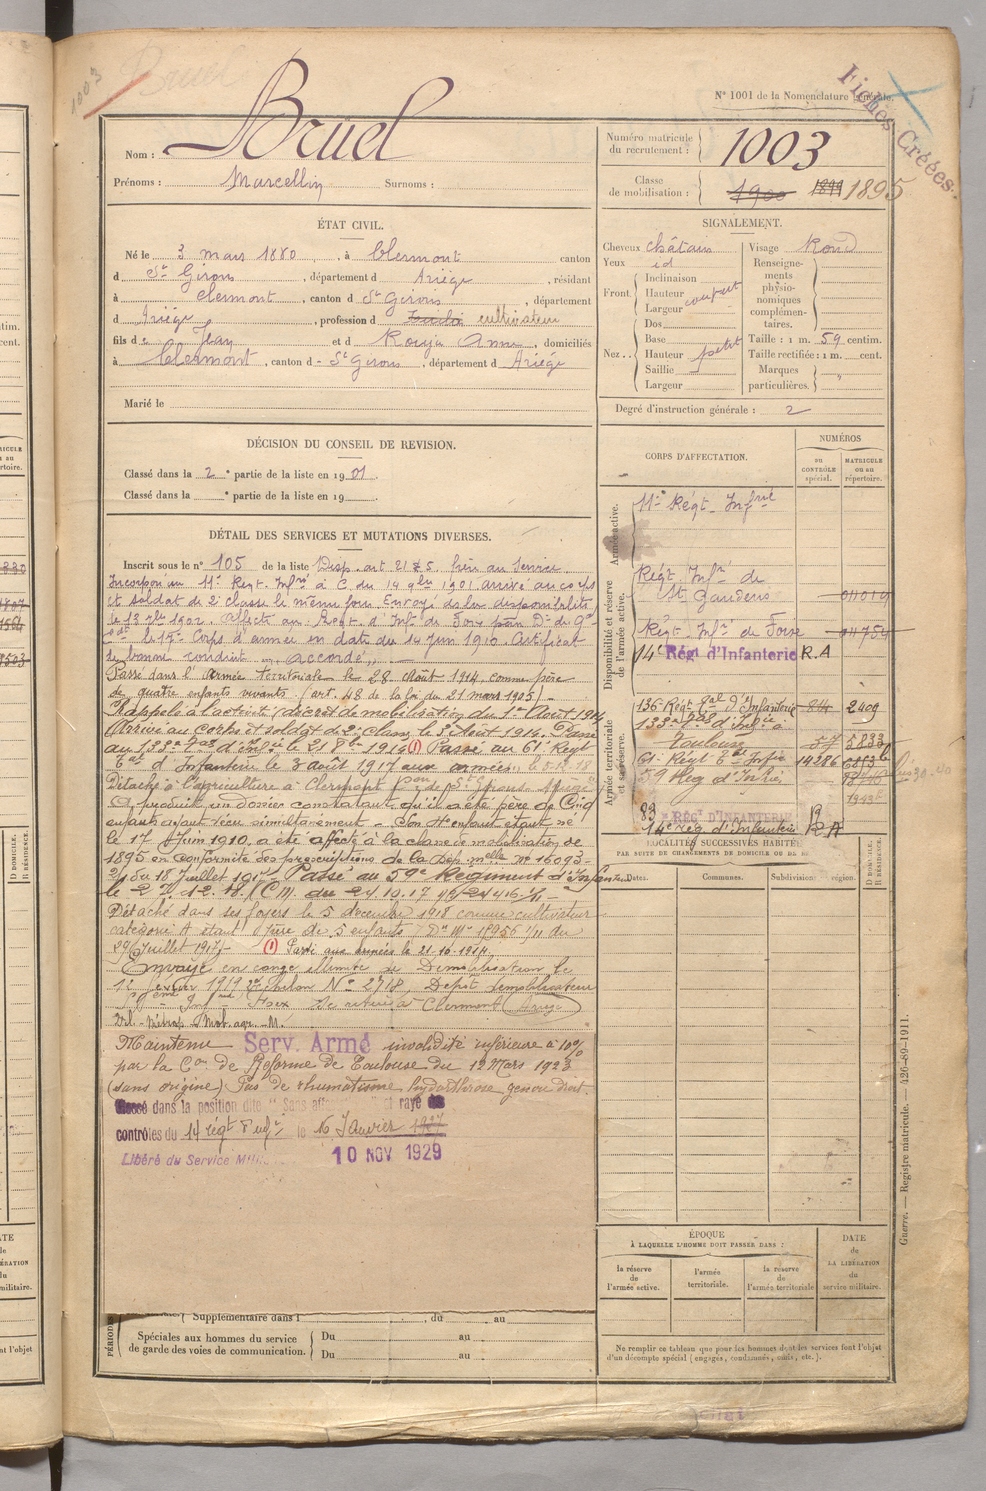 1003
Bruel
N° 1001 de la Nomenclature générale.
Fiches Créées.
Nom : Bruel
Prénoms : Marcellin Surnoms :
Numéro matricule du recrutement : 1003
Classe de mobilisation : 1900 1899 1895
ÉTAT CIVIL.
Né le 3 mars 1880, à Clermont canton
d St Girons, département d Ariège, résidant
à Clermont, canton d St Girons, département
d Ariège, profession d cultivateur
fils de Jean et d Rouja Anne, domiciliés
à Clermont, canton d St Girons, département d Ariège
Marié le
SIGNALEMENT.
Cheveux châtains
Yeux id
Front. Inclinaison
Hauteur
Largeur
Nez... Dos
Base
Hauteur petit
Saillie
Largeur
Visage Rond
Renseignements physionomiques complémentaires.
Taille : 1 m. 59 centim.
Taille rectifiée : 1 m. cent.
Marques particulières. "
Degré d'instruction générale : 2
DÉCISION DU CONSEIL DE REVISION.
Classé dans la 2e partie de la liste en 1901
Classé dans la e partie de la liste en 19
DÉTAIL DES SERVICES ET MUTATIONS DIVERSES.
Inscrit sous le n° 105 de la liste Disp. art 21 frère au Service
Incorporé au 11e Regt. Infrie à C. du 14 9bre 1901 arrivé au corps
et soldat de 2e classe le même jour. Envoyé dans la disponibilité
le 13 1902. Affecté au Regt. d'Inf. de Foix
le 17e Corps d'armée en date du 14 Juin 1910. Certificat
de bonne conduite "accordé"
Passé dans l'armée territoriale le 28 Août 1914, comme père
de quatre enfants vivants (art. 48 de la loi du 21 mars 1905)
Rappelé à l'activité (décret de mobilisation du 1er Août 1914
Arrivé au corps et soldat de 2e classe le 3 Août 1914. Passé
au 133e d'Infie le 21 8bre 1914 (1) Passé au 61e Régt
d'Infanterie le 3 août 1917 aux armées
Détaché à l'agriculture à Clermont St Girons Ariège
A produit un dossier constatant qu'il a été père de Cinq
enfants ayant vécu simultanément. Son enfant étant né
le 17 Juin 1910, a été affecté à la classe de mobilisation de
1895 en conformité des prescriptions de la Dép. melle N° 16093
du 18 Juillet 1917 Passé au 59e Régiment d'Infanterie
le 27.12.18 (C.M. du 24.10.17
Détaché dans ses foyers le 5 décembre 1918 comme cultivateur
catégorie A étant Père de 5 enfants 1/11 du
29 Juillet 1917) (1) Parti aux armées le 21-10-1914.
Envoyé en congé illimité de Démobilisation le
1919 échelon N° 2718, Dépôt démobilisateur
Foix Se retire à Clermont (Ariège)
Maintenu Serv. Armé invalidité inférieure à 10%
par la Con de Réforme de Toulouse du 12 Mars 1923
(sans origine) Pas de rhumatisme hydarthrose genou droit.
Classé dans la position dite "Sans affectation" et rayé des
contrôles du 14 régt le 16 Janvier 1927
Libéré du Service Milit. 10 NOV 1929
CORPS D'AFFECTATION.
NUMÉROS
au CONTRÔLE spécial.
MATRICULE ou au répertoire.
Armée active.
11e Régt. Infrie
Disponibilité et réserve de l'armée active.
Régt. Infie de St Gaudens 011019
Régt. Infie de Foix 011754
14e Régt d'Infanterie R.A
Armée territoriale et sa réserve.
136e Régt d'Infanterie 814 2409
133e d'Infie
Toulouse 57 5833
61e Régt Infie 14286
59 Rég d'Infie
83e RÉGt D'INFANTERIE
14e reg. d'Infanterie R A
LOCALITÉS SUCCESSIVES HABITÉES
PAR SUITE DE CHANGEMENTS DE DOMICILE OU DE RÉ
Dates.
Communes.
Subdivision région.
D. DOMICILE.
R. RÉSIDENCE.
ÉPOQUE
À LAQUELLE L'HOMME DOIT PASSER DANS :
la réserve de l'armée active.
l'armée territoriale.
la réserve de l'armée territoriale
DATE de LA LIBÉRATION du service militaire.
Ne remplir ce tableau que pour les hommes dont les services font l'objet
d'un décompte spécial (engagés, condamnés, omis, etc.).
PÉRIODES
Supplémentaire dans l , du au
Spéciales aux hommes du service
de garde des voies de communication.
Du au
Du au
Guerre. — Registre matricule. — 426-89-1911.